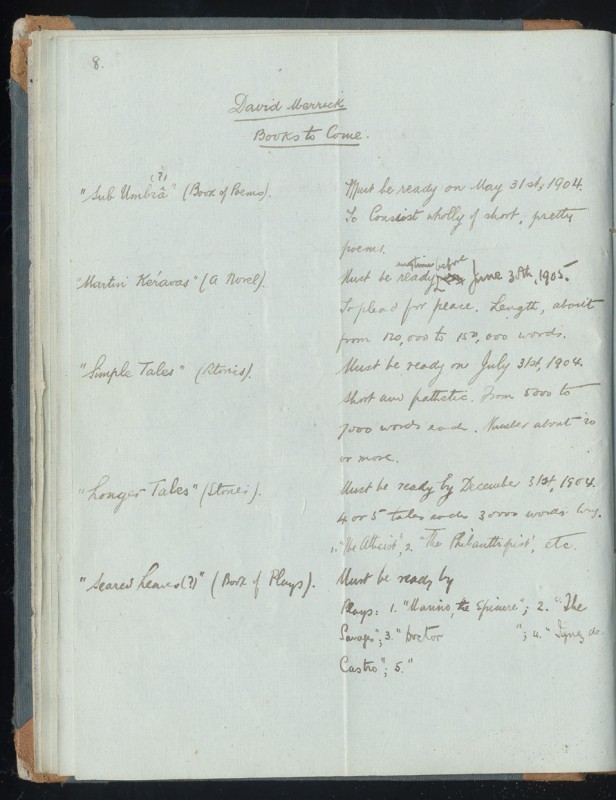 8.
David Merrick
Books to Come.
(?)
"Sub Umbrâ" (Book of Poems). Must be ready on May 31st, 1904.
To Consist wholly of short, pretty
poems.
anytime before
"Martin Kéravas" (A Novel). Must be ready June 30th, 1905.
To plead for peace. Length, about
from 120,000 to 150,000 words.
"Simple Tales" (Stories). Must be ready on July 31st, 1904.
Short and pathetic. From 5000 to
7000 words each. Number about 20
or more.
"Longer Tales" (Stories). Must be ready by December 31st, 1904.
4 or 5 tales each 30000 words long.
1. "The Atheist", 2. "The Philanthropist", etc.
"Seared Leaves (?)" (Book of Plays). Must be ready by
Plays: 1. "Marino, the"; 2. "The
Savage"; 3. "Doctor "; 4. "Ignez de
Castro"; 5. "